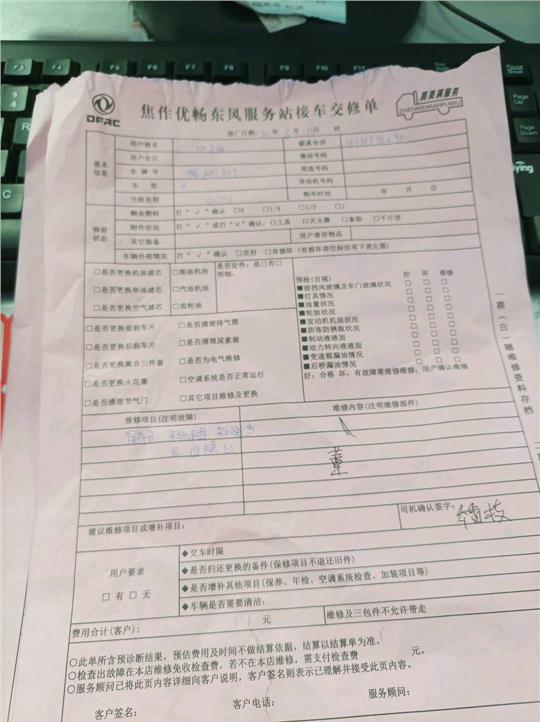 DFAC
焦作优畅东风服务站接车交修单
臻美满服务
ZHENMEIMANFUWU
进厂日期: 年 月 日 时
基本信息
用户姓名 联系电话
用户生日 微信号码
车牌号 底盘号码
车型 发动机号码
当前里程 购车时间 年 月 日
修前状态
剩余燃料 打“√”确认 □0 □1/4 □1/2 □1
附件状况: 打“√”或打“×”确认:□工具 □灭火器 □备胎 □千斤顶
其它装备 用户寄存物品
车辆外观情况 打“√”确认 □完好 □有损坏(有损坏部位标注有下表左图)
□是否更换机油滤芯 □柴油机油
□是否更换柴油滤芯 □汽油机油
□是否更换空气滤芯 □齿轮油
是否定件:是□否□
明细:
□是否更换前刹车片 □是否清理排气筒
□是否更换后刹车片 □是否清理尿素箱
□是否更换离合三件套 □是否为电气维修
□是否更换火花塞 □空调系统是否正常运行
□是否清理节气门 □其它项目维修及更换
预检(目视) 好 坏 维修
■前挡风玻璃及车门玻璃状况 □ □ □
■灯具情况 □ □ □
■油量状况 □ □ □
■轮胎状况 □ □ □
■发动机机油状况 □ □ □
■防冻防锈瓶状况 □ □ □
■制动液液面 □ □ □
■动力转向液液面 □ □ □
■变速箱漏油情况 □ □ □
■后桥漏油情况 □ □ □
好:合格 坏:有故障需维修维修:用户确认维修
报修项目(注明故障) 维修内容(注明维修部件)
董
建议维修项目或增补项目:
司机确认签字:
用户要求
□有 □无
◆交车时限
◆是否归还更换的备件(保修项目不退还旧件)
◆是否增补其他项目(保养、年检、空调系统检查、加装项目等)
◆车辆是否需要清洁:
费用合计(客户): 元 维修及三包件不允许带走
○此单所含预诊断结果,预估费用及时间不做结算依据,结算以结算单为准。
○检查出故障在本店维修免收检查费,若不在本店维修,需支付检查费 元。
○服务顾问已将此页内容详细向客户说明,客户签名则表示已理解并接受此页内容。
客户签名: 客户电话: 服务顾问:
一联(白)随维修资料存档